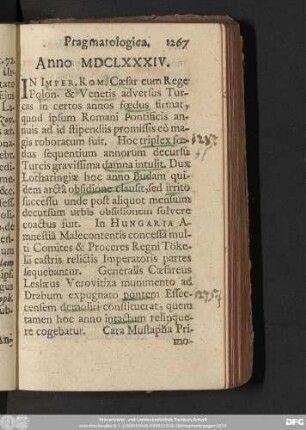 Pragmatologica. 1267
Anno MDCLXXXIV.
IN IMPER. ROM. Cæsar cum Rege
Polon. & Venetis adversus Tur-
cas in certos annos fœdus firmat,
quod ipsum Romani Pontificis an-
nuis ad id stipendiis promissis eò ma-
gis roboratum fuit. Hoc triplex fœ-
dus sequentium annorum decursu
Turcis gravissima damna intulit. Dux
Lotharingiæ hoc anno Budam qui-
dem arctâ obsidione clausit, sed irrito
successu unde post aliquot mensium
decursum urbis obsidionem solvere
coactus fuit. In HUNGARIA A
mnestiâ Malecontentis concessâ mul-
ti Comites & Proceres Regni Töke-
lii castris relictis Imperatoris partes
sequebantur. Generalis Cæsareus
Leslæus Verovitiza munimento ad
Drabum expugnato pontem Essec-
censem demoliri constituerat, quem
tamen hoc anno intactum relinque-
re cogebatur. Cara Mustapha Pri-
mo-